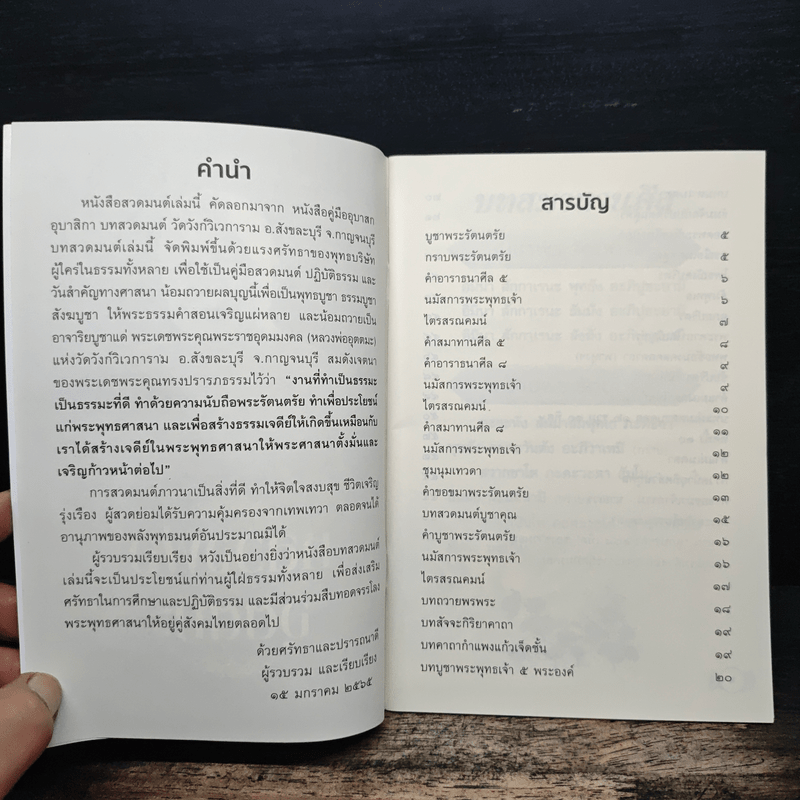 คำนำ
หนังสือสวดมนต์เล่มนี้ คัดลอกมาจาก หนังสือคู่มืออุบาสก
อุบาสิกา บทสวดมนต์ วัดวังก์วิเวการาม อ.สังขละบุรี จ.กาญจนบุรี
บทสวดมนต์เล่มนี้ จัดพิมพ์ขึ้นด้วยแรงศรัทธาของพุทธบริษัท
ผู้ใคร่ในธรรมทั้งหลาย เพื่อใช้เป็นคู่มือสวดมนต์ ปฏิบัติธรรม และ
วันสำคัญทางศาสนา น้อมถวายผลบุญนี้เพื่อเป็นพุทธบูชา ธรรมบูชา
สังฆบูชา ให้พระธรรมคำสอนเจริญแผ่หลาย และน้อมถวายเป็น
อาจาริยบูชาแด่ พระเดชพระคุณพระราชอุดมมงคล (หลวงพ่ออุตตมะ)
แห่งวัดวังก์วิเวการาม อ.สังขละบุรี จ.กาญจนบุรี สมดังเจตนา
ของพระเดชพระคุณทรงปรารภธรรมไว้ว่า “งานที่ทำเป็นธรรมะ
เป็นธรรมะที่ดี ทำด้วยความนับถือพระรัตนตรัย ทำเพื่อประโยชน์
แก่พระพุทธศาสนา และเพื่อสร้างธรรมเจดีย์ให้เกิดขึ้นเหมือนกับ
เราได้สร้างเจดีย์ในพระพุทธศาสนาให้พระศาสนาตั้งมั่นและ
เจริญก้าวหน้าต่อไป”
การสวดมนต์ภาวนาเป็นสิ่งที่ดี ทำให้จิตใจสงบสุข ชีวิตเจริญ
รุ่งเรือง ผู้สวดย่อมได้รับความคุ้มครองจากเทพเทวา ตลอดจนได้
อานุภาพของพลังพุทธมนต์อันประมาณมิได้
ผู้รวบรวมเรียบเรียง หวังเป็นอย่างยิ่งว่าหนังสือบทสวดมนต์
เล่มนี้จะเป็นประโยชน์แก่ท่านผู้ใฝ่ธรรมทั้งหลาย เพื่อส่งเสริม
ศรัทธาในการศึกษาและปฏิบัติธรรม และมีส่วนร่วมสืบทอดจรรโลง
พระพุทธศาสนาให้อยู่คู่สังคมไทยตลอดไป
ด้วยศรัทธาและปรารถนาดี
ผู้รวบรวม และเรียบเรียง
๑๕ มกราคม ๒๕๖๕
สารบัญ
บูชาพระรัตนตรัย ๕
กราบพระรัตนตรัย ๕
คำอาราธนาศีล ๕ ๖
นมัสการพระพุทธเจ้า ๖
ไตรสรณคมน์ ๗
คำสมาทานศีล ๕ ๘
คำอาราธนาศีล ๘ ๙
นมัสการพระพุทธเจ้า ๙
ไตรสรณคมน์ ๑๐
คำสมาทานศีล ๘ ๑๑
นมัสการพระพุทธเจ้า ๑๒
ชุมนุมเทวดา ๑๒
คำขอขมาพระรัตนตรัย ๑๓
บทสวดมนต์บูชาคุณ ๑๕
คำบูชาพระรัตนตรัย ๑๖
นมัสการพระพุทธเจ้า ๑๖
ไตรสรณคมน์ ๑๗
บทถวายพรพระ ๑๘
บทสัจจะกิริยาคาถา ๑๙
บทคาถากำแพงแก้วเจ็ดชั้น ๑๙
บทบูชาพระพุทธเจ้า ๕ พระองค์ ๒๐